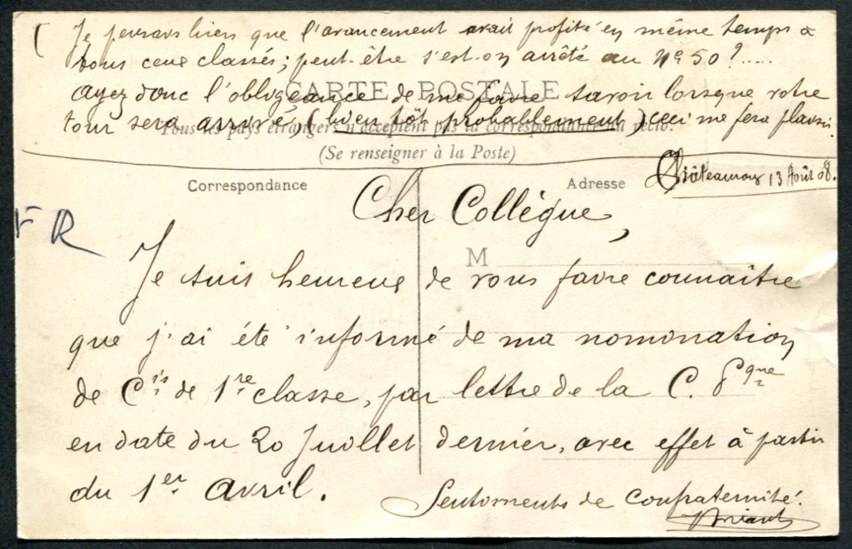 Je pensais bien que l'avancement avait profité en même temps à
tous ceux classés; peut-être s'est-on arrêté au Nº 50?.....
Ayez donc l'obligeance de me faire savoir lorsque votre
tour sera arrivé, (bien tôt probablement) ceci me fera plaisir.
CARTE POSTALE
Tous les pays étrangers n'acceptent pas la correspondance au recto.
(Se renseigner à la Poste)
Correspondance
Adresse
13 Août 08.
FR
Cher Collègue,
M
Je suis heureux de vous faire connaître
que j'ai été informé de ma nomination
de Cis de 1re classe, par lettre de la C. Pque
en date du 20 Juillet dernier, avec effet à partir
du 1er Avril.
Sentiments de confraternité.